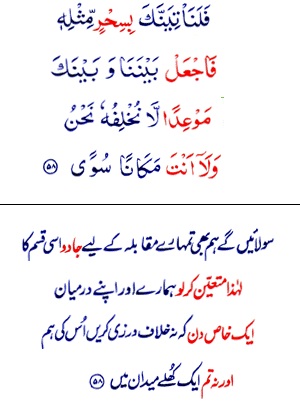 فَلَنَاْتِيَنَّكَ بِسِحْرٍ مِّثْلِهٖ
فَاجْعَلْ بَيْنَنَا وَ بَيْنَكَ
مَوْعِدًا لَّا نُخْلِفُهٗ نَحْنُ
وَلَاۤ اَنْتَ مَكَانًا سُوًى ﴿۵۸﴾
سو لائیں گے ہم بھی تمہارے مقابلہ کے لیے جادو اسی قسم کا
لہٰذا متعیّن کر لو ہمارے اور اپنے درمیان
ایک خاص دن کہ نہ خلاف ورزی کریں اُس کی ہم
اور نہ تم ایک کُھلے میدان میں ﴿۵۸﴾